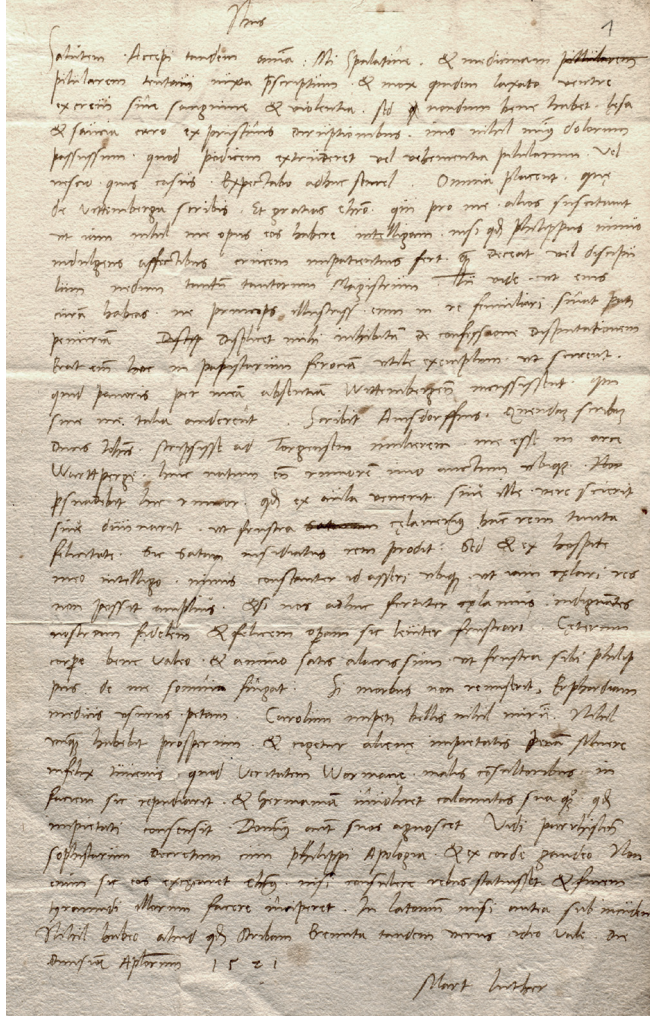 Ihus
1
Salutem. Accepi tandem omnia Mi Spalatine. & medicinam
pilularem tentavi iuxta praescriptum. & mox quidem laxato ventre
excrevi sine sanguine & violentia. sed nondum bene habet. lesa
& saucia caro ex pristinis diruptionibus. imo nihil minus dolorum
passus sum. quod podicem extruderet vel vehementia pilularum. Vel
nescio quis casus. Expectabo adhuc. Omnia placent. que
de Vittemberga scribis. Et gratias Christo. qui pro me. alios suscitavit
ut iam nihil me opus eos habere intelligam. nisi quod Philippus nimis
indulgens affectibus crucem impatientius fert. quam deceat vel discipu
lum nedum tantum tantorum Magistrum. ut eius
curam habeas. ne princeps illustriss. eum in re familiari sinat pati
penuriam. Displicet mihi inhibitam de confessione disputationem
Erat enim hoc in papistarum ferociam utile exemplum. ut scirent.
quid pavoris per meam absentiam Wittembergenses incussissent. qui
sine me. talia auderent. Scribit Amsdorffius. quendam scribam
ducis Iohannis scripsisse ad Torgensem mulierem. me esse in arce
Wartperge. hinc natum eum rumorem imo auctum ubique. Non
persuadebit hic rumor. quod ex aula venerit. sive ille vere scierit
sive divinarit. ut frustra celaverimus hanc rem tanta
felicitate. Sic Satan insidiatus rem prodit. Sed & ex hospite
meo intelligo. nimis constanter id asseri ubique. ut iam celari res
non possit amplius. & si nos adhuc fortiter celamus. indignantes
nostram fidelem & felicem operam sic leviter frustrari. Ceterum
corpore bene valeo. & animo satis alacrissimo. ut frustra sibi Philip
pus. de me somnia fingat. Si morbus non remiserit, Erphordiam
medicis usurus petam. Carolum impeti bellis nihil mirum. Nihil
unquam habebit prosperum. & cogetur aliene impietatis penam luere
infelix iuvenis. quod veritatem Wormacie. malis consultoribus. in
faciem sic repudiavit. & Germaniam involvet calamitas sua quoque. quod
impietati consensit. Dominus autem suos agnoscet. Vidi parrhisiensium
sophistarum decretum cum Philippi Apologia. & ex corde gaudeo. Non
enim sic eos excecaret Christus. nisi consulere rebus statuisset. & finem
tyrannidi illorum facere inciperet. In latomum
Nihil habeo aliud quod scribam Eremita tandem verus. ideo Vale. die
Divisionis Apostolorum 1521
Mart Luther